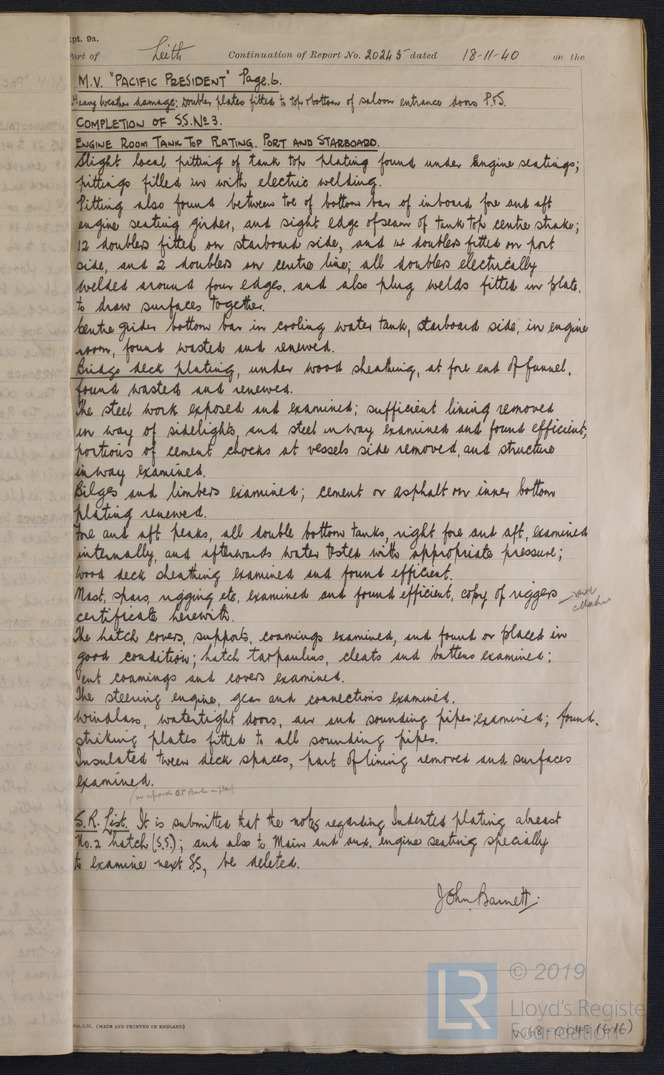 Rpt. 9a.
Port of Leith Continuation of Report No. 20245 dated 18-11-40 on the
M.V. "PACIFIC PRESIDENT" Page.6.
Heavy weather damage: Doubler plates fitted to top & bottom of saloon entrance doors P.&S.
COMPLETION OF S.S. No 3.
ENGINE ROOM TANK TOP PLATING. PORT AND STARBOARD.
Slight local pitting of tank top plating found under Engine seatings;
pittings filled in with electric welding.
Pitting also found between toe of bottom bar of inboard fore and aft
engine seating girder, and sight edge of seam of tank top centre strake;
12 doublers fitted on starboard side, and 14 doublers fitted on port
side, and 2 doublers on centre line; all doublers electrically
welded around four edges, and also plug welds fitted in plate,
to draw surfaces together.
Centre girder bottom bar in cooling water tank, starboard side, in engine
room, found wasted and renewed.
Bridge deck plating, under wood sheathing, at fore end of funnel,
found wasted and renewed.
The steel work exposed and examined; sufficient lining removed
in way of sidelights, and steel inway examined and found efficient;
portions of cement chocks at vessels side removed, and structure
inway examined.
Bilges and limbers examined; cement or asphalt on inner bottom
plating renewed.
Fore and aft peaks, all double bottom tanks, right fore and aft, examined
internally, and afterwards water tested with appropriate pressure;
wood deck sheathing examined and found efficient.
Mast, spars, rigging etc, examined and found efficient, copy of riggers
certificate herewith.
The hatch covers, supports, coamings examined, and found or placed in
good condition; hatch tarpaulins, cleats and battens examined;
Vent coamings and covers examined.
The steering engine, gear and connections examined.
Windlass, watertight doors, air and sounding pipes examined; found.
striking plates fitted to all sounding pipes.
Insulated tween deck spaces, part of lining removed and surfaces
examined.
S.R. List. It is submitted that the notes regarding Indented plating abreast
No.2 hatch (S.S.); and also to Main and aux. engine seating specially
to examine next S.S, be deleted.
John Barnett.
(MADE AND PRINTED IN ENGLAND)
LR © 2019
Lloyd's Register
Foundation